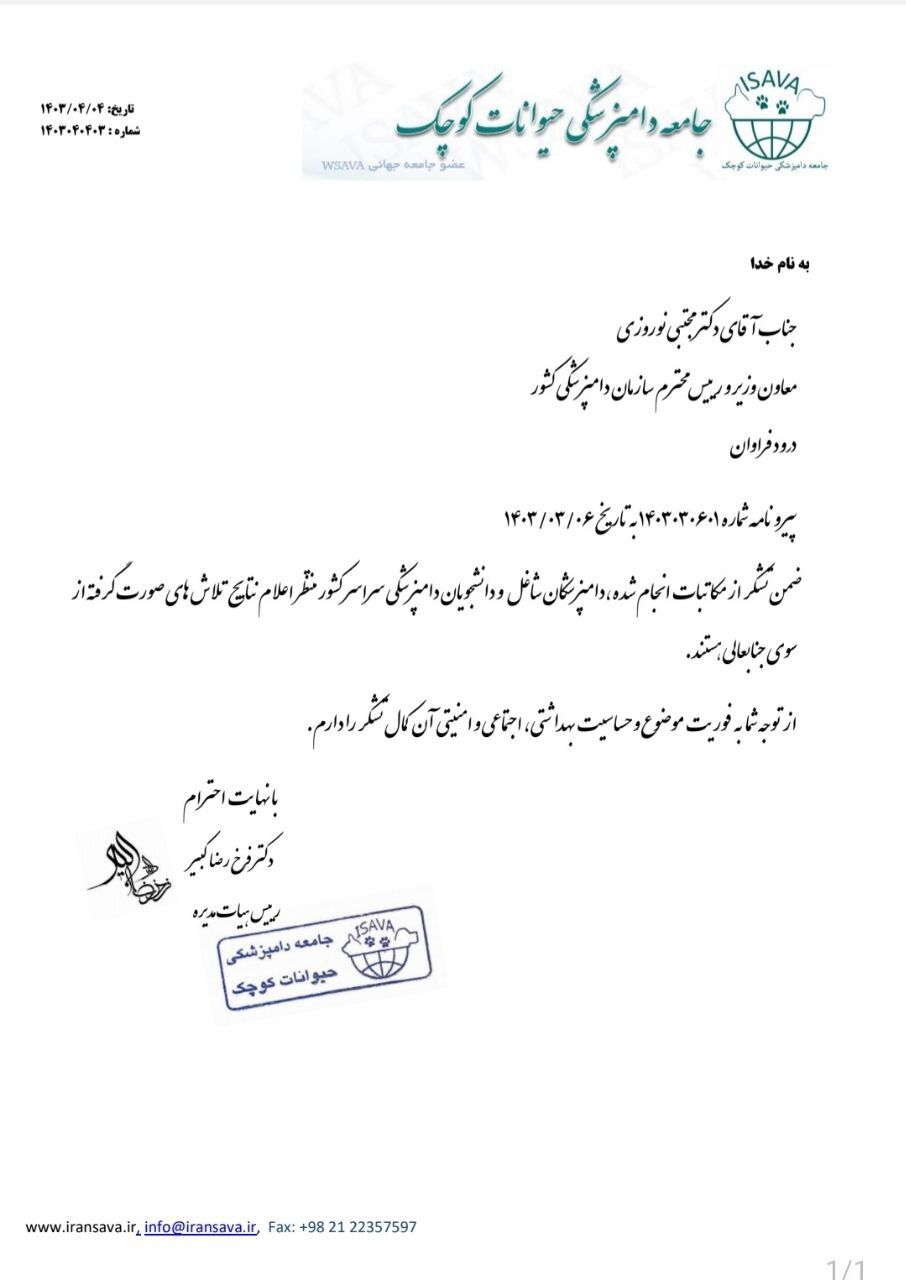 تاریخ: ۱۴۰۳/۰۴/۰۴
شماره : ۱۴۰۳۰۴۰۴۰۳
ISAVA
جامعه دامپزشکی حیوانات کوچک
جامعه دامپزشکی حیوانات کوچک
عضو جامعه جهانی WSAVA
به نام خدا
جناب آقای دکتر مجتبی نوروزی
معاون وزیر و رییس محترم سازمان دامپزشکی کشور
درود فراوان
پیرو نامه شماره ۱۴۰۳۰۳۰۶۰۱ به تاریخ ۱۴۰۳/۰۳/۰۶
ضمن تشکر از مکاتبات انجام شده، دامپزشکان شاغل و دانشجویان دامپزشکی سراسر کشور منتظر اعلام نتایج تلاش های صورت گرفته از
سوی جنابعالی هستند.
از توجه شما به فوریت موضوع و حساسیت بهداشتی، اجتماعی و امنیتی آن کمال تشکر را دارم.
با نهایت احترام
دکتر فرخ رضا کبیر
رییس هیات مدیره
ISAVA
جامعه دامپزشکی
حیوانات کوچک
www.iransava.ir, info@iransava.ir, Fax: +98 21 22357597
1/1